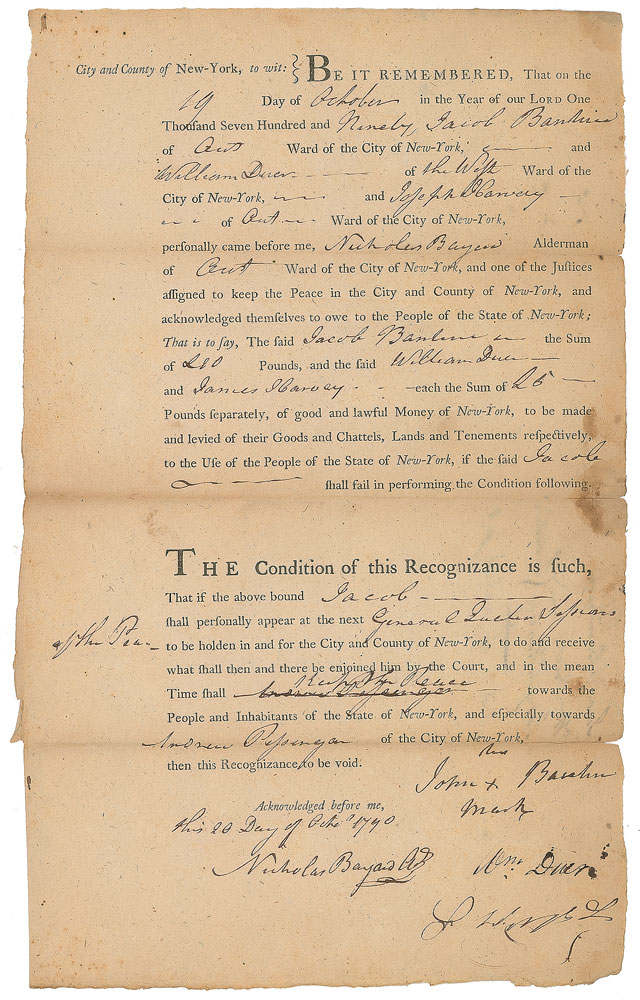 City and County of New-York, to wit: } BE IT REMEMBERED, That on the
19 Day of October in the Year of our LORD One
Thouſand Seven Hundred and Ninety, Jacob
of Out Ward of the City of New-York, and
William Duer of the West Ward of the
City of New-York, and Joseph Harvey
of Out Ward of the City of New-York,
perſonally came before me, Nicholas Bayard Alderman
of Out Ward of the City of New-York, and one of the Juſtices
aſſigned to keep the Peace in the City and County of New-York, and
acknowledged themſelves to owe to the People of the State of New-York;
That is to ſay, The ſaid Jacob the Sum
of £10 Pounds, and the ſaid William Duer
and James Harvey each the Sum of £5
Pounds ſeparately, of good and lawful Money of New-York, to be made
and levied of their Goods and Chattels, Lands and Tenements reſpectively,
to the Uſe of the People of the State of New-York, if the ſaid Jacob
ſhall fail in performing the Condition following.
THE Condition of this Recognizance is ſuch,
That if the above bound Jacob
ſhall perſonally appear at the next General Quarter Sessions
of the Peace
to be holden in and for the City and County of New-York, to do and receive
what ſhall then and there be enjoined him by the Court, and in the mean
Keep the Peace
Time ſhall towards the
People and Inhabitants of the State of New-York, and eſpecially towards
Andrew of the City of New-York,
then this Recognizance to be void.
his
John x
mark
Acknowledged before me,
this 20 Day of Octo 1790
Nicholas Bayard Wm Duer